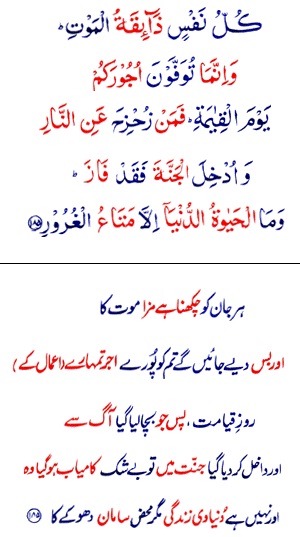 كُلُّ نَفْسٍ ذَآئِقَةُ الْمَوْتِ ؕ
وَ اِنَّمَا تُوَفَّوْنَ اُجُوْرَكُمْ
يَوْمَ الْقِيٰمَةِ ؕ فَمَنْ زُحْزِحَ عَنِ النَّارِ
وَ اُدْخِلَ الْجَنَّةَ فَقَدْ فَازَ ؕ
وَمَا الْحَيٰوةُ الدُّنْيَاۤ اِلَّا مَتَاعُ الْغُرُوْرِ ۝۱۸۵
ہر جان کو چکھنا ہے مزا موت کا
اور بس دیے جائیں گے تم کو پُورے اجر تمہارے (اعمال کے)
روزِ قیامت ، پس جو بچا لیا گیا آگ سے
اور داخل کر دیا گیا جنّت میں تو بے شک کامیاب ہو گیا وہ
اور نہیں ہے دُنیاوی زندگی مگر محض سامان دھوکے کا ۝۱۸۵